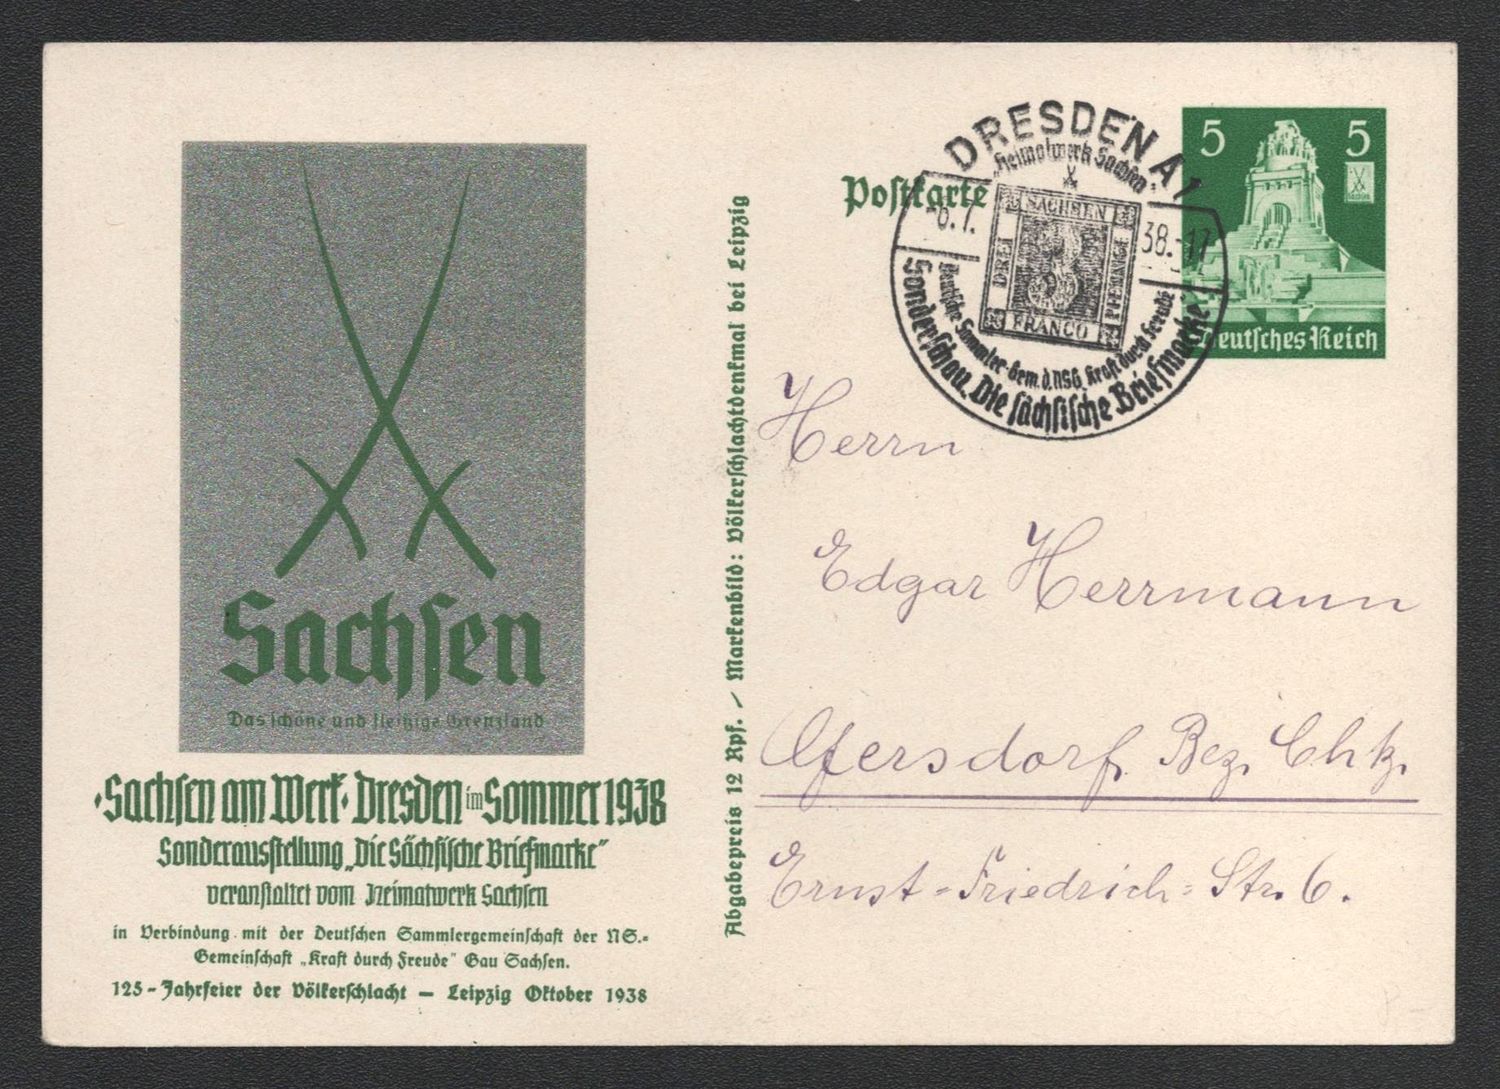 Sachsen
Das schöne und fleißige Grenzland
·Sachsen am Werk·Dresden im Sommer 1938
Sonderausstellung „Die Sächsische Briefmarke"
veranstaltet vom Heimatwerk Sachsen
in Verbindung mit der Deutschen Sammlergemeinschaft der NS.-
Gemeinschaft „Kraft durch Freude" Gau Sachsen.
125-Jahrfeier der Völkerschlacht — Leipzig Oktober 1938
Abgabepreis 12 Rpf. / Markenbild: Völkerschlachtdenkmal bei Leipzig
Postkarte
DRESDEN A 1
„Heimatwerk Sachsen"
-6.7. 38.-17
SACHSEN
DREI
3
PFENNIGE
FRANCO
Deutsche Sammler-Gem. d. NSG „Kraft durch Freude"
Sonderschau „Die sächsische Briefmarke"
5 5
Sachsen
Deutsches Reich
Herrn
Edgar Herrmann
Bez. Chtz.
Ernst-Friedrich-Str. 6.